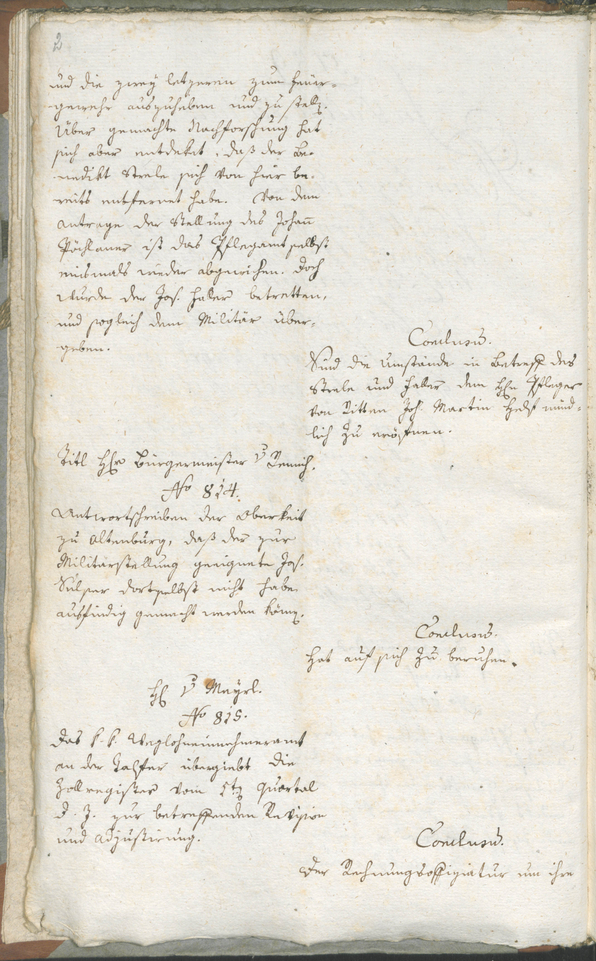 2
und die zwey letzeren zum Feuer-
gewehr auszuheben und zu stellen.
Über gemachte Nachforschung hat
sich aber entdeket, daß der Be-
nedikt Strele sich von hier be-
reits entfernet habe. Von dem
Antrage der Stellung des Johann
Pöchlaner ist das Pflegamt selbst
niemals wieder abgewichen. Doch
wurde der Jos. Haler betretten,
und sogleich dem Militär über-
geben.
Conclusum.
Sind die Umstände in Betreff des
Strele und Haler dem Hhn Pfleger
von Ritten Joh. Martin münd-
lich zu eröffnen.
Titl Hhr Bürgermeister v Remich.
No 814.
Antwortschreiben der Oberkeit
zu Altenburg, daß der zur
Militärstellung geeignete Jos.
Sulser dortselbst nicht habe
ausfindig gemacht werden können.
Conclusum.
Hat auf sich zu beruhen.
Hh v Mayrl.
No 815.
Das k. k. Weglohneinnehmeramt
an der Talfer übergiebt die
Zollregister vom Quartal
d. J. zur betreffenden Revision
und Adjustirung.
Conclusum.
Der Rechnungsoffiziatur um ihre